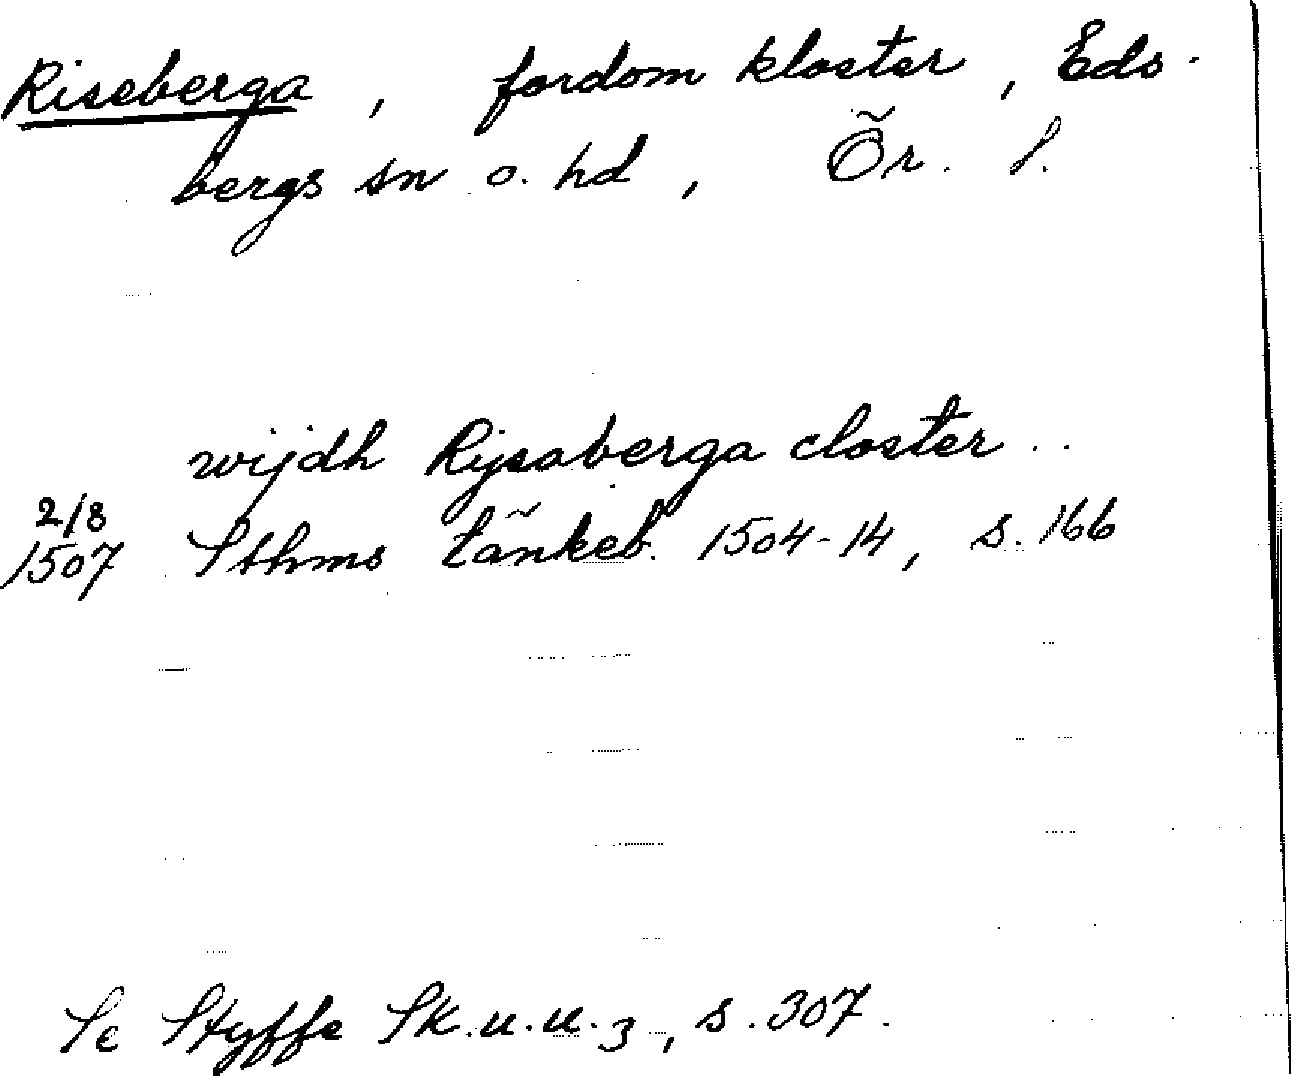 Riseberga, fordom kloster, Eds-
bergs sn o. hd, Ör. l.
wijdh Rijsaberga closter ..
2/8
1507 Sthms tänkeb. 1504-14, s. 166
Se Styffe Sk.u.u. 3, s. 307.